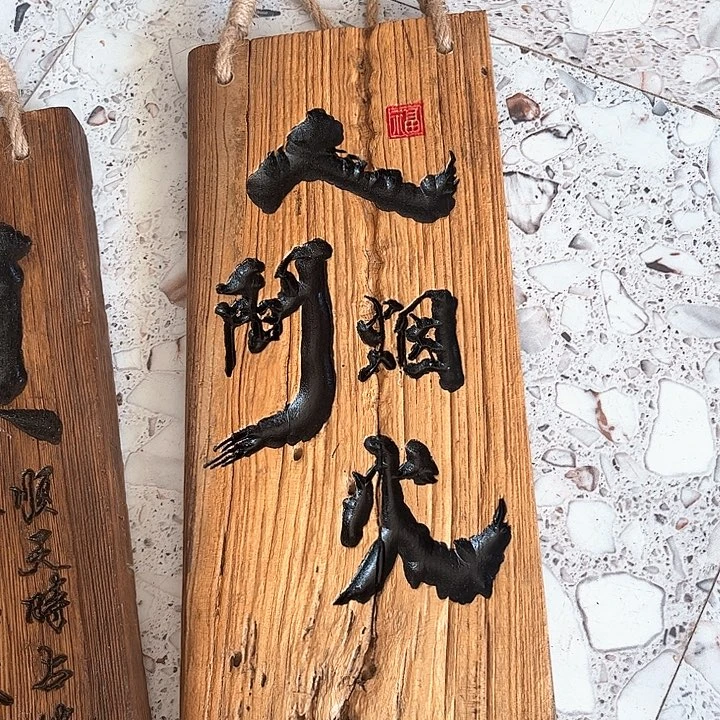 福
人
間烟
火
順天時上